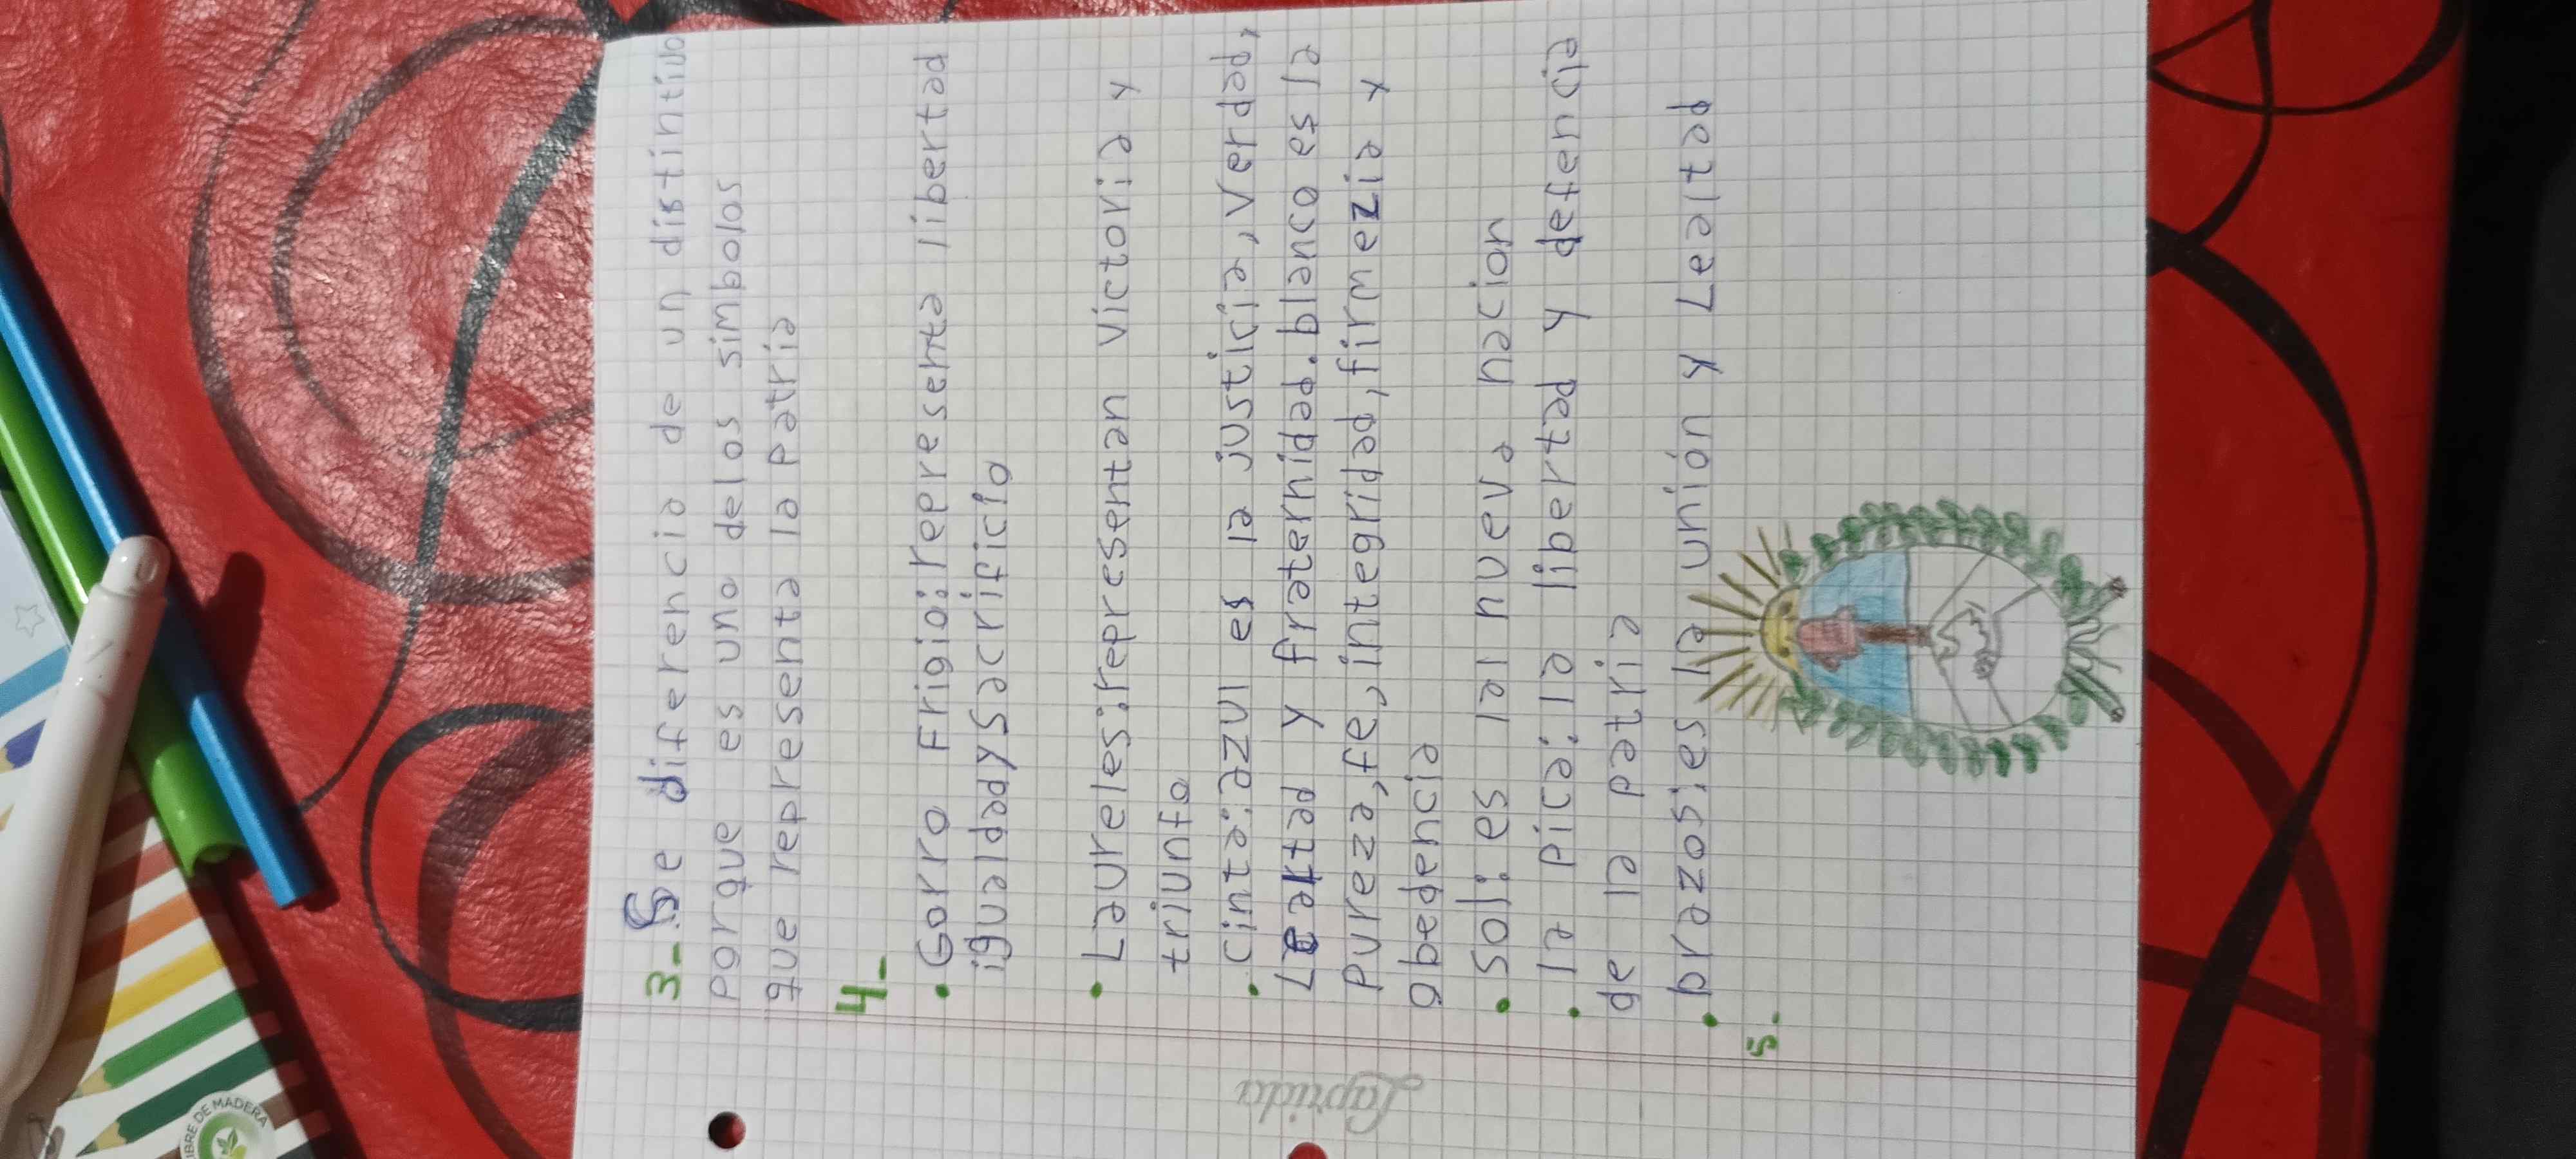 3- Se diferencia de un distintivo
porque es uno delos simbolos
que representa la patria
4-
• Gorro Frigio: reepresenta libertad
igualdadySacrificio
• Laureles: representan victoria y
triunfo
• Cinta: azul es la justicia, verdad,
Lealtad y fraternidad. blanco es la
pureza, fe, integridad, firmezia y
obedencia
• Sol: es lal nueva nacion
• la pica: la libertad y defencia
de la patria
• brazos: es la unión y Lealtad
5-
Laprida
IBRE DE MADERA